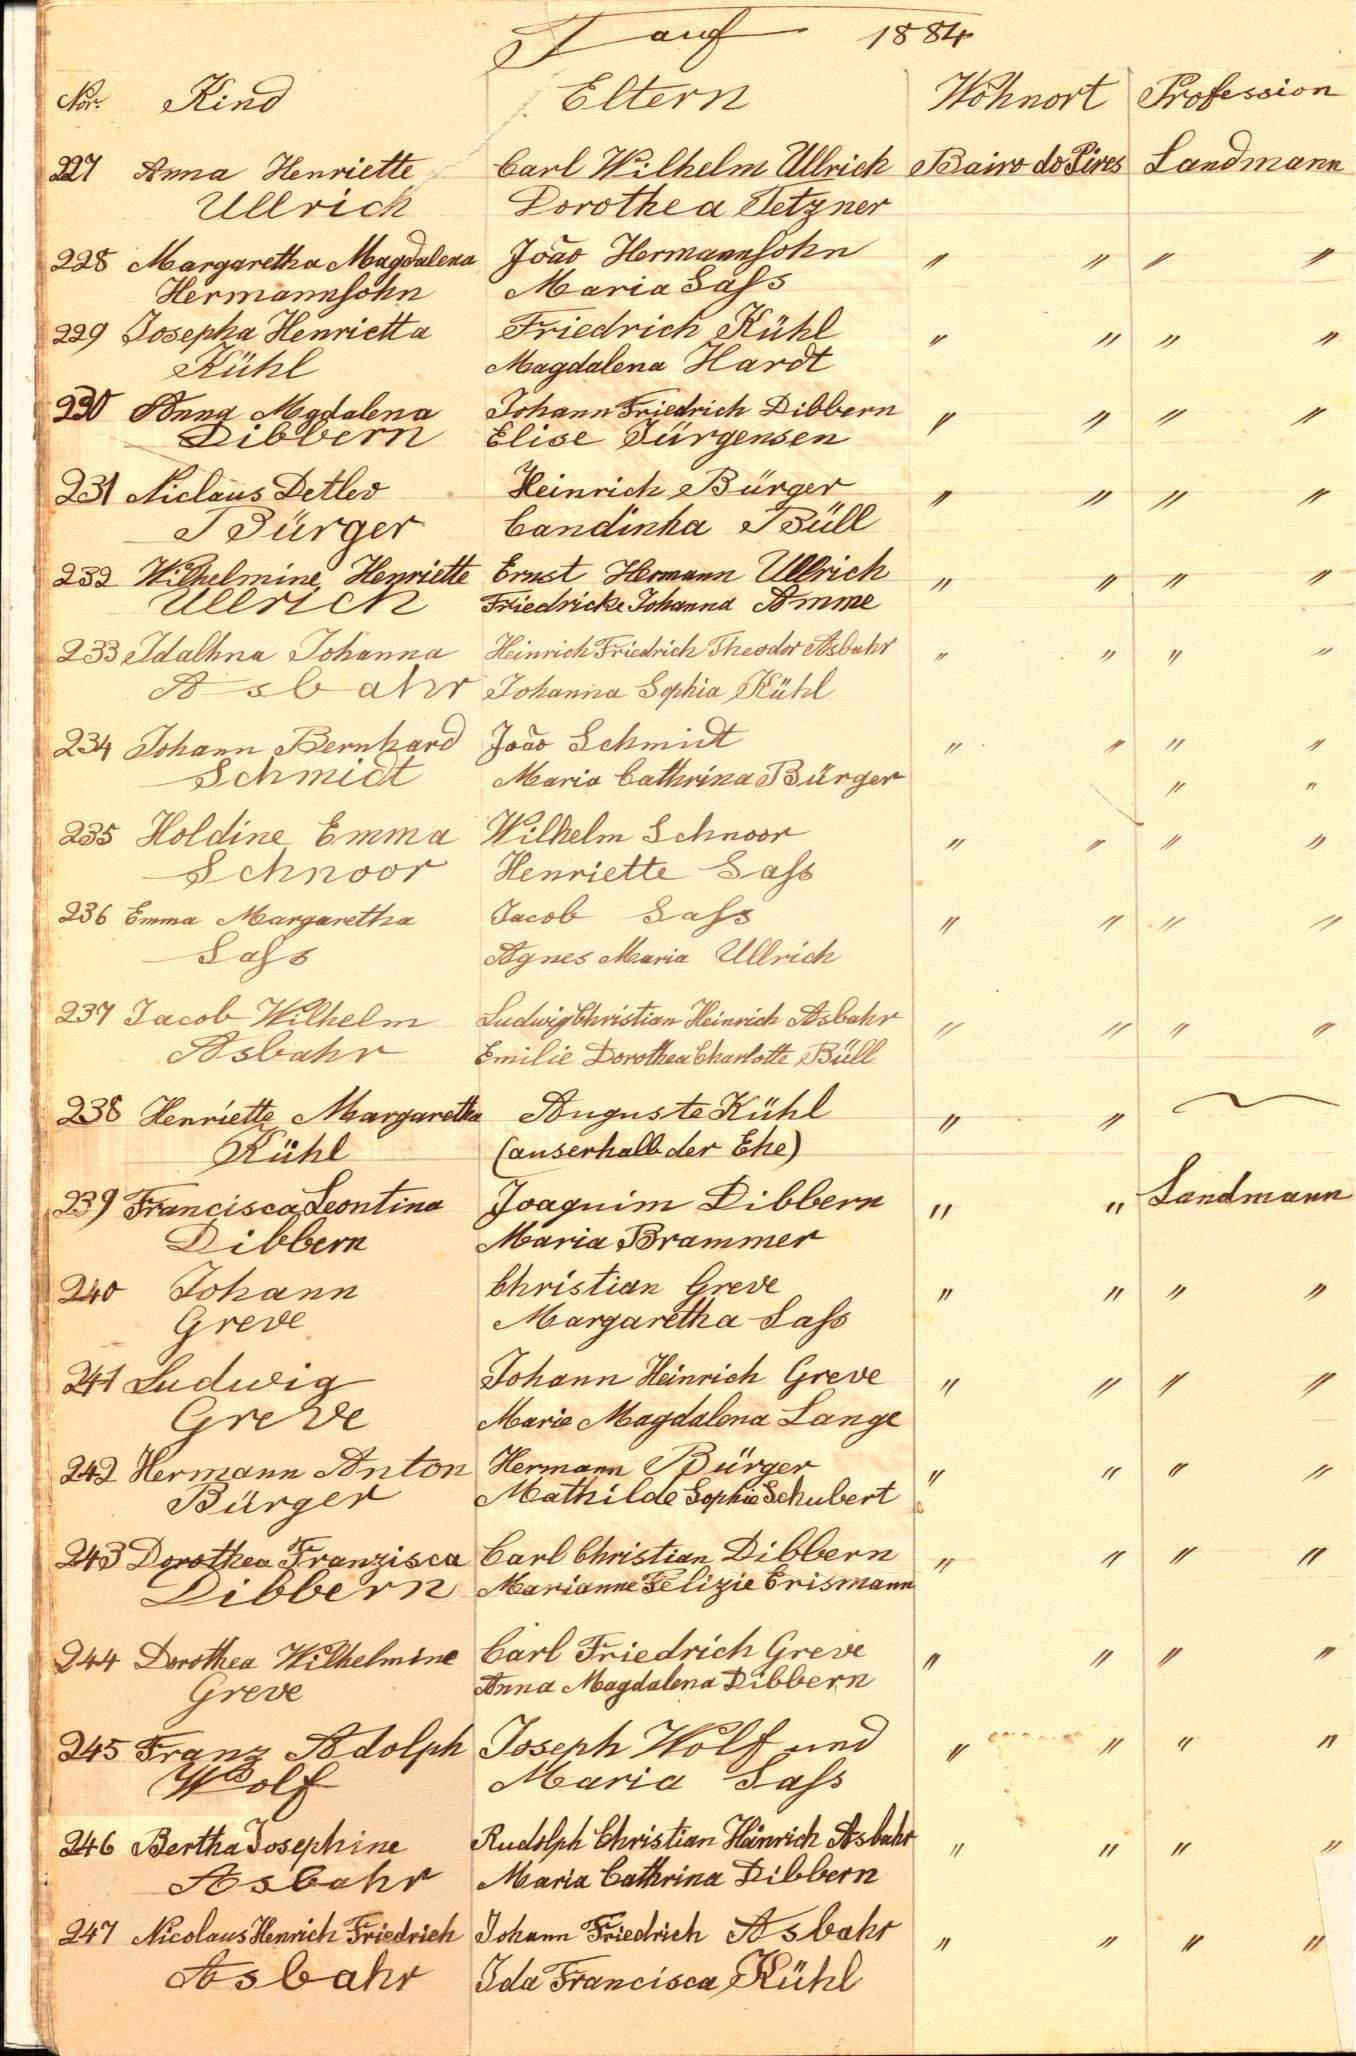 Tauf 1884
Nor. Kind Eltern Wohnort Profession
227 Anna Henriette Carl Wilhelm Ullrich Bairo do Pires Landmann
Ullrich Dorothea Tetzner
228 Margaretha Magdalena João Hermannſohn " " " "
Hermannſohn Maria Saſs
229 Josepha Henrietta Friedrich Kühl " " " "
Kühl Magdalena Hardt
230 Anna Mgdalena Johann Friedrich Dibbern " " " "
Dibbern Elise Jürgensen
231 Niclaus Detlev Heinrich Bürger " " " "
Bürger Candinha Büll
232 Wilhelmine Henriette Ernst Hermann Ullrich " " " "
Ullrich Friedricke Johanna Amme
233 Idalhna Johanna Heinrich Friedrich Theodor Asbahr " " " "
Asbahr Johanna Sophia Kühl
234 Johann Bernhard João Schmidt " " " "
Schmidt Maria Cathrina Bürger " "
235 Holdine Emma Wilhelm Schnoor " " " "
Schnoor Henriette Saſs
236 Emma Margaretha Jacob Saſs " " " "
Saſs Agnes Maria Ullrich
237 Jacob Wilhelm Ludwig Christian Heinrich Asbahr " " " "
Asbahr Emilie Dorothea Charlotte Büll
238 Henriette Margaretha Auguste Kühl " " ~
Kühl (auserhalb der Ehe)
239 Francisca Leontina Joaquim Dibbern " " Landmann
Dibbern Maria Brammer
240 Johann Christian Greve " " " "
Greve Margaretha Saſs
241 Ludwig Johann Heinrich Greve " " " "
Greve Marie Magdalena Lange
242 Hermann Anton Hermann Bürger " " " "
Bürger Mathilde Sophie Schubert
243 Dorothea Franzisca Carl Christian Dibbern " " " "
Dibbern Marianne Felizie Erismann
244 Dorothea Wilhelmine Carl Friedrich Greve " " " "
Greve Anna Magdalena Dibbern
245 Franz Adolph Joseph Wolf und " " " "
Wolf Maria Saſs
246 Bertha Josephine Rudolph Christian Heinrich Asbahr " " " "
Asbahr Maria Cathrina Dibbern
247 Nicolaus Henrich Friedrich Johann Friedrich Asbahr " " " "
Asbahr Ida Francisca Kühl